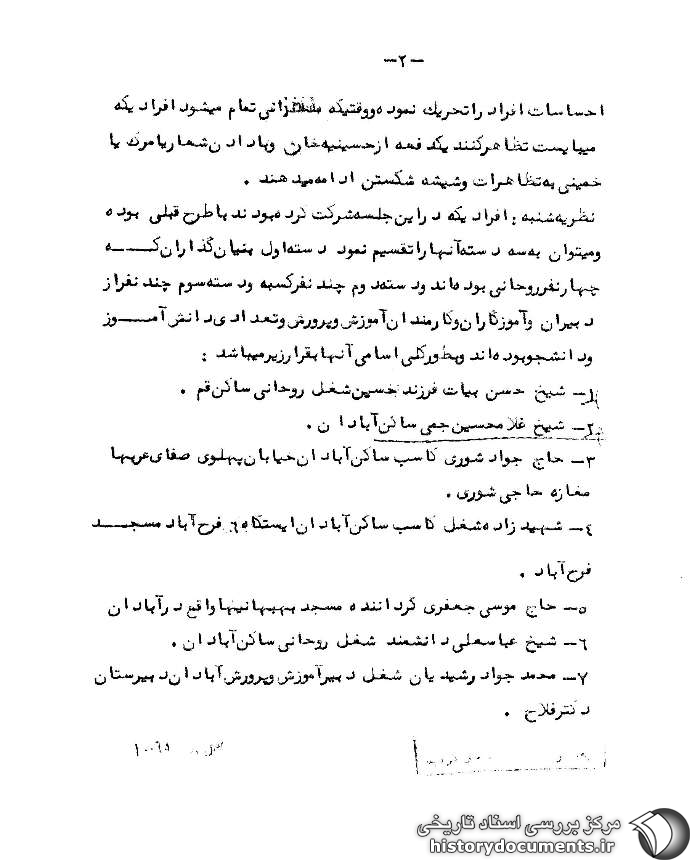 -۲-
احساسات افراد را تحریك نموده ووقتیکه سخنرانی تمام میشود افرادیکه
میبایست تظاهرکنند یکدفعه ازحسینیه خان وبادادن شعاریامرگ یا
خمینی به تظاهرات وشیشه شکستن ادامه میدهند .
نظریه شنبه : افرادیکه دراین جلسه شرکت کرده بودند باطرح قبلی بوده
ومیتوان به سه دسته آنهاراتقسیم نمود دسته اول بنیان گذاران کـــــه
چهارنفرروحانی بوده اند ودسته دوم چندنفرکسبه ودسته سوم چندنفراز
دبیران وآموزگاران وکارمندان آموزش وپرورش وتعدادی دانش آمـــوز
ودانشجوبوده اند وبطورکلی اسامی آنهابقرارزیرمیباشد :
۱- شیخ حسن بیات فرزند حسین شغل روحانی ساکن قم .
۲- شیخ غلامحسین جمی ساکن آبادان .
۳- حاج جواد شوری کاسب ساکن آبادان خیابان پهلوی صفای عربها
مغازه حاجی شوری .
٤- شهیدزاده شغل کاسب ساکن آبادان ایستگاه ٦ فرح آباد مسجـــد
فرح آباد .
۵- حاج موسی جعفری گرداننده مسجد بهبهانیهاواقع درآبادان
٦- شیخ عباسعلی دانشمند شغل روحانی ساکن آبادان .
۷- محمدجواد رشیدیان شغل دبیرآموزش وپرورش آبادان دبیرستان
دکترفلاح .
مرکز بررسی اسناد تاریخی
historydocuments.ir